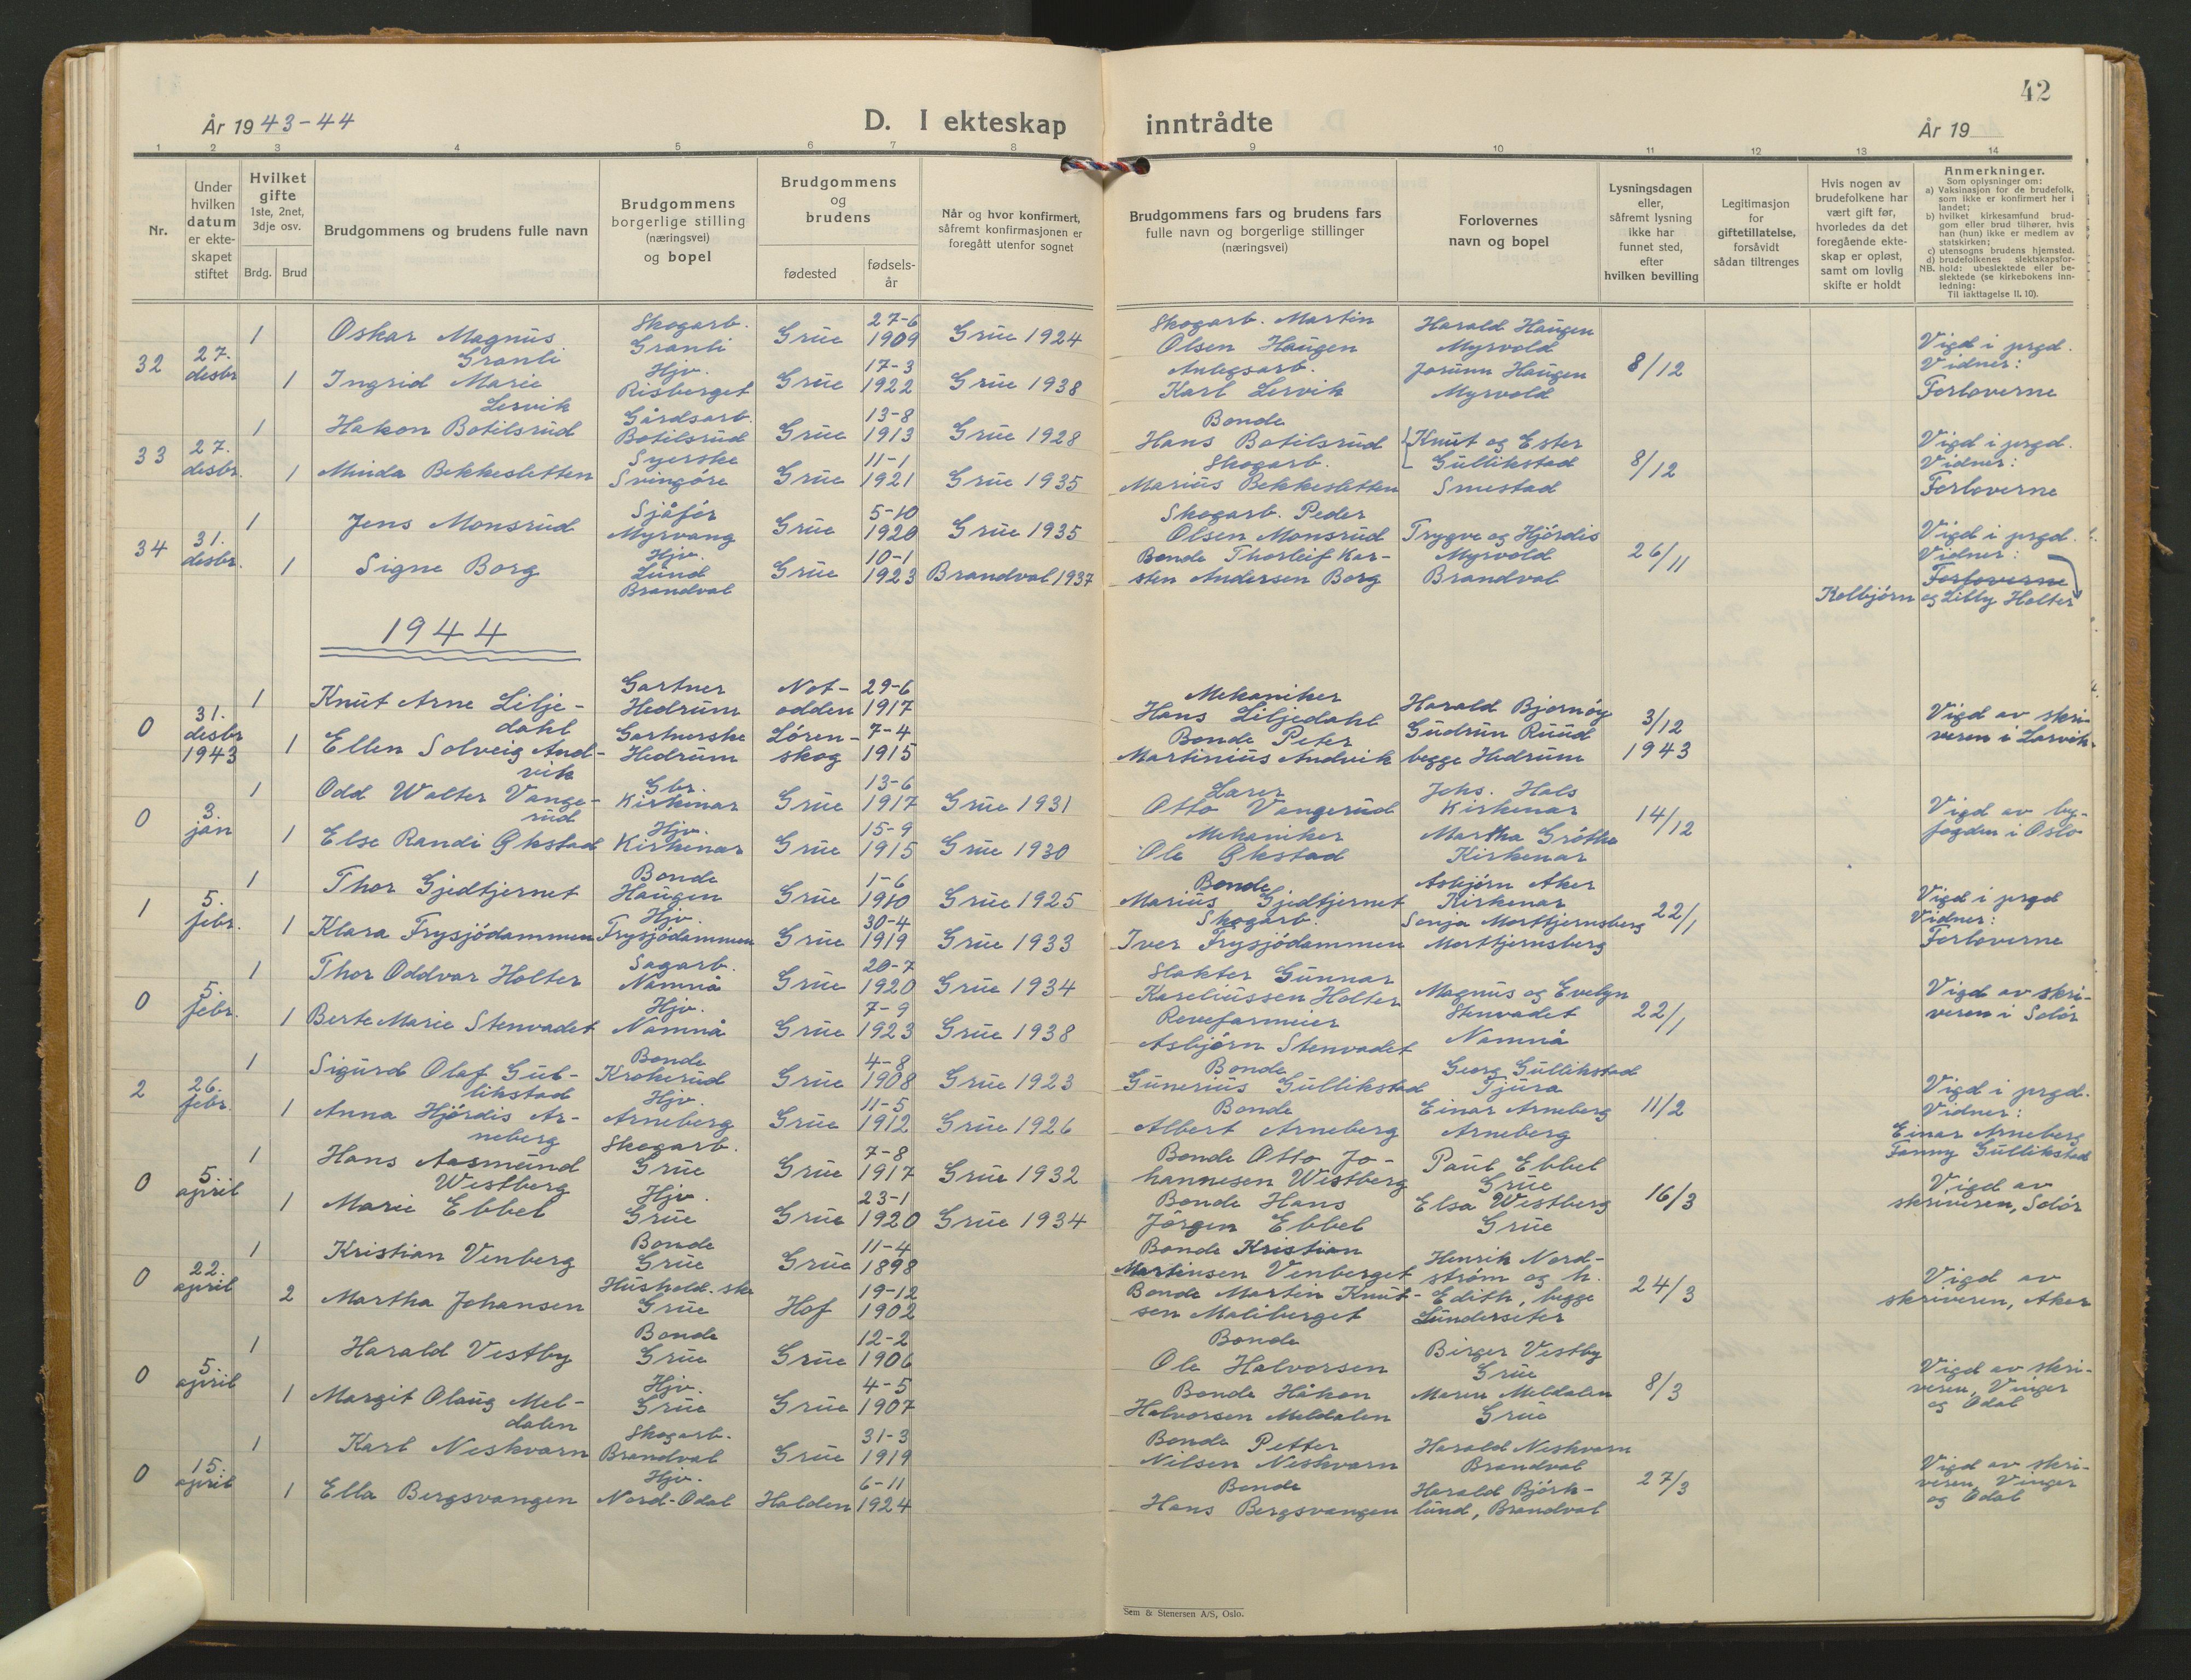 42
År 1943-44
D. I ekteskap inntrådte
År 19
1 2 3 4 5 6 7 8 9 10 11 12 13 14
Nr.
Under hvilken datum er ekte-skapet stiftet
Hvilket gifte
1ste, 2net, 3dje osv.
Brdg. Brud
Brudgommens og brudens fulle navn
Brudgommens borgerlige stilling (næringsvei) og bopel
Brudgommens og brudens
fødested
fødsels-år
Når og hvor konfirmert, såfremt konfirmasjonen er foregått utenfor sognet
Brudgommens fars og brudens fars fulle navn og borgerlige stillinger (næringsvei)
Forlovernes navn og bopel
Lysningsdagen eller, såfremt lysning ikke har funnet sted, efter hvilken bevilling
Legitimasjon for giftetillatelse, forsåvidt sådan tiltrenges
Hvis nogen av brudefolkene har vært gift før, hvorledes da det foregående ekte-skap er opløst, samt om lovlig skifte er holdt
Anmerkninger.
Som oplysninger om:
a) Vaksinasjon for de brudefolk, som ikke er konfirmert her i landet;
b) hvilket kirkesamfund brud-gom eller brud tilhører, hvis han (hun) ikke er medlem av statskirken;
c) utensogns brudens hjemsted.
d) brudefolkenes slektskapsfor-hold: ubeslektede eller be-slektede (se kirkebokens Inn-ledning:
NB. Til iakttagelse II. 10).
32 27. desbr 1 Oskar Magnus Granli Skogarb. Granli Grue 27-6 1909 Grue 1924 Skogarb. Martin Olsen Haugen Harald Haugen Myrvold 8/12 Vigd i prgd. Vidner: Forloverne
1 Ingrid Marie Lervik Hjv. Risberget Grue 17-3 1922 Grue 1938 Anlegsarb. Karl Lervik Jorunn Haugen Myrvold
33 27. desbr. 1 Hakon Botilsrud Gårdsarb. Botilsrud Grue 13-8 1913 Grue 1928 Bonde Hans Botilsrud Knut og Ester Gullikstad Smestad 8/12 Vigd i prgd. Vidner: Forloverne
1 Minda Bekkesletten Syerske Svingöre Grue 11-1 1921 Grue 1935 Skogarb. Marius Bekkesletten
34 31. desbr. 1 Jens Monsrud Sjåför Myrvang Grue 5-10 1920 Grue 1935 Skogarb. Peder Olsen Monsrud Trygve og Hjördis Myrvold Brandval 26/11 Vigd i prgd. Vidner: Forloverne
1 Signe Borg Hjv. Lund Brandval Grue 10-1 1923 Brandval 1937 Bonde Thorleif Kar-sten Andersen Borg Kolbjörn og Lilly Holter
1944
0 31. desbr 1943 1 Knut Arne Lilje-dahl Gartner Hedrum Not-odden 29-6 1917 Mekaniker Hans Liljedahl Harald Bjornöy 3/12 1943 Vigd av skri-veren i Larvik.
1 Ellen Solveig And-vik Gartnerske Hedrum Lören-skog 7-4 1915 Bonde Peter Martinius Andvik Gudrun Ruud begge Hedrum
0 3. jan 1 Odd Walter Vange-rud Gbr. Kirkenær Grue 13-6 1917 Grue 1931 Lærer Otto Vangerud Johs. Hals Kirkenær 14/12 Vigd av by-fogden i Oslo
1 Else Randi Økstad Hjv. Kirkenær Grue 15-9 1915 Grue 1930 Mekaniker Ole Økstad Martha Gröthe Kirkenær
1 5. febr. 1 Thor Gjedtjernet Bonde Haugen Grue 1-6 1910 Grue 1925 Bonde Marius Gjedtjernet Asbjörn Aker Kirkenær 22/1 Vigd i prgd Vidner: Forloverne
1 Klara Frysjödammen Hjv. Frysjödammen Grue 30-4 1919 Grue 1933 Skogarb. Iver Frysjödammen Sonja Morttjernsberg Morttjernsberg
0 5. febr. 1 Thor Oddvar Holter Sagarb. Namnå Grue 20-7 1920 Grue 1934 Slakter Gunnar Kareliussen Holter Magnus og Evelyn Stenvadet Namnå 22/1 Vigd av skri-veren i Solör
1 Berte Marie Stenvadet Hjv. Namnå Grue 7-9 1923 Grue 1938 Revefarmeier Asbjörn Stenvadet
2 26. febr. 1 Sigurd Olaf Gul-likstad Bonde Krokerud Grue 4-8 1908 Grue 1923 Bonde Gunerius Gullikstad Georg Gullikstad Tjura 11/2 Vigd i prgd. Vidner: Einar Arneberg Fanny Gullikstad
1 Anna Hjördis Ar-neberg Hjv. Arneberg Grue 11-5 1912 Grue 1926 Bonde Albert Arneberg Einar Arneberg Arneberg
0 5. april 1 Hans Aasmund Westberg Skogarb. Grue Grue 7-8 1917 Grue 1932 Bonde Otto Jo-hannesen Westberg Paul Ebbel Grue 16/3 Vigd av skriveren, Solör
1 Marie Ebbel Hjv. Grue Grue 23-1 1920 Grue 1934 Bonde Hans Jörgen Ebbel Elsa Westberg Grue
0 22. april 1 Kristian Venberg Bonde Grue Grue 11-4 1898 Bonde Kristian Martinsen Venberget Henrik Nord-ström og h. Edith, begge Lunderseter 24/3 Vigd av skriveren, Aker
2 Martha Johansen Hushold.ske Grue Hof 19-12 1902 Bonde Martin Knut-sen Maliberget
0 5. april 1 Harald Vestby Bonde Grue Grue 12-2 1906 Bonde Ole Halvorsen Birger Vestby Grue 8/3 Vigd av skri-veren, Vinger og Odal
1 Margit Olaug Mel-dalen Hjv. Grue Grue 4-5 1907 Bonde Håkon Halvorsen Meldalen Maren Meldalen Grue
0 15. april 1 Karl Neskvarn Skogarb. Brandval Grue 31-3 1919 Bonde Petter Nilsen Neskvarn Harald Neskvarn Brandval 27/3 Vigd av skri-veren, Vinger og Odal
1 Ella Bergsvangen Hjv. Nord-Odal Halden 6-11 1924 Bonde Hans Bergsvangen Harald Björk-lund, Brandval
Sem & Stenersen A/S, Oslo.